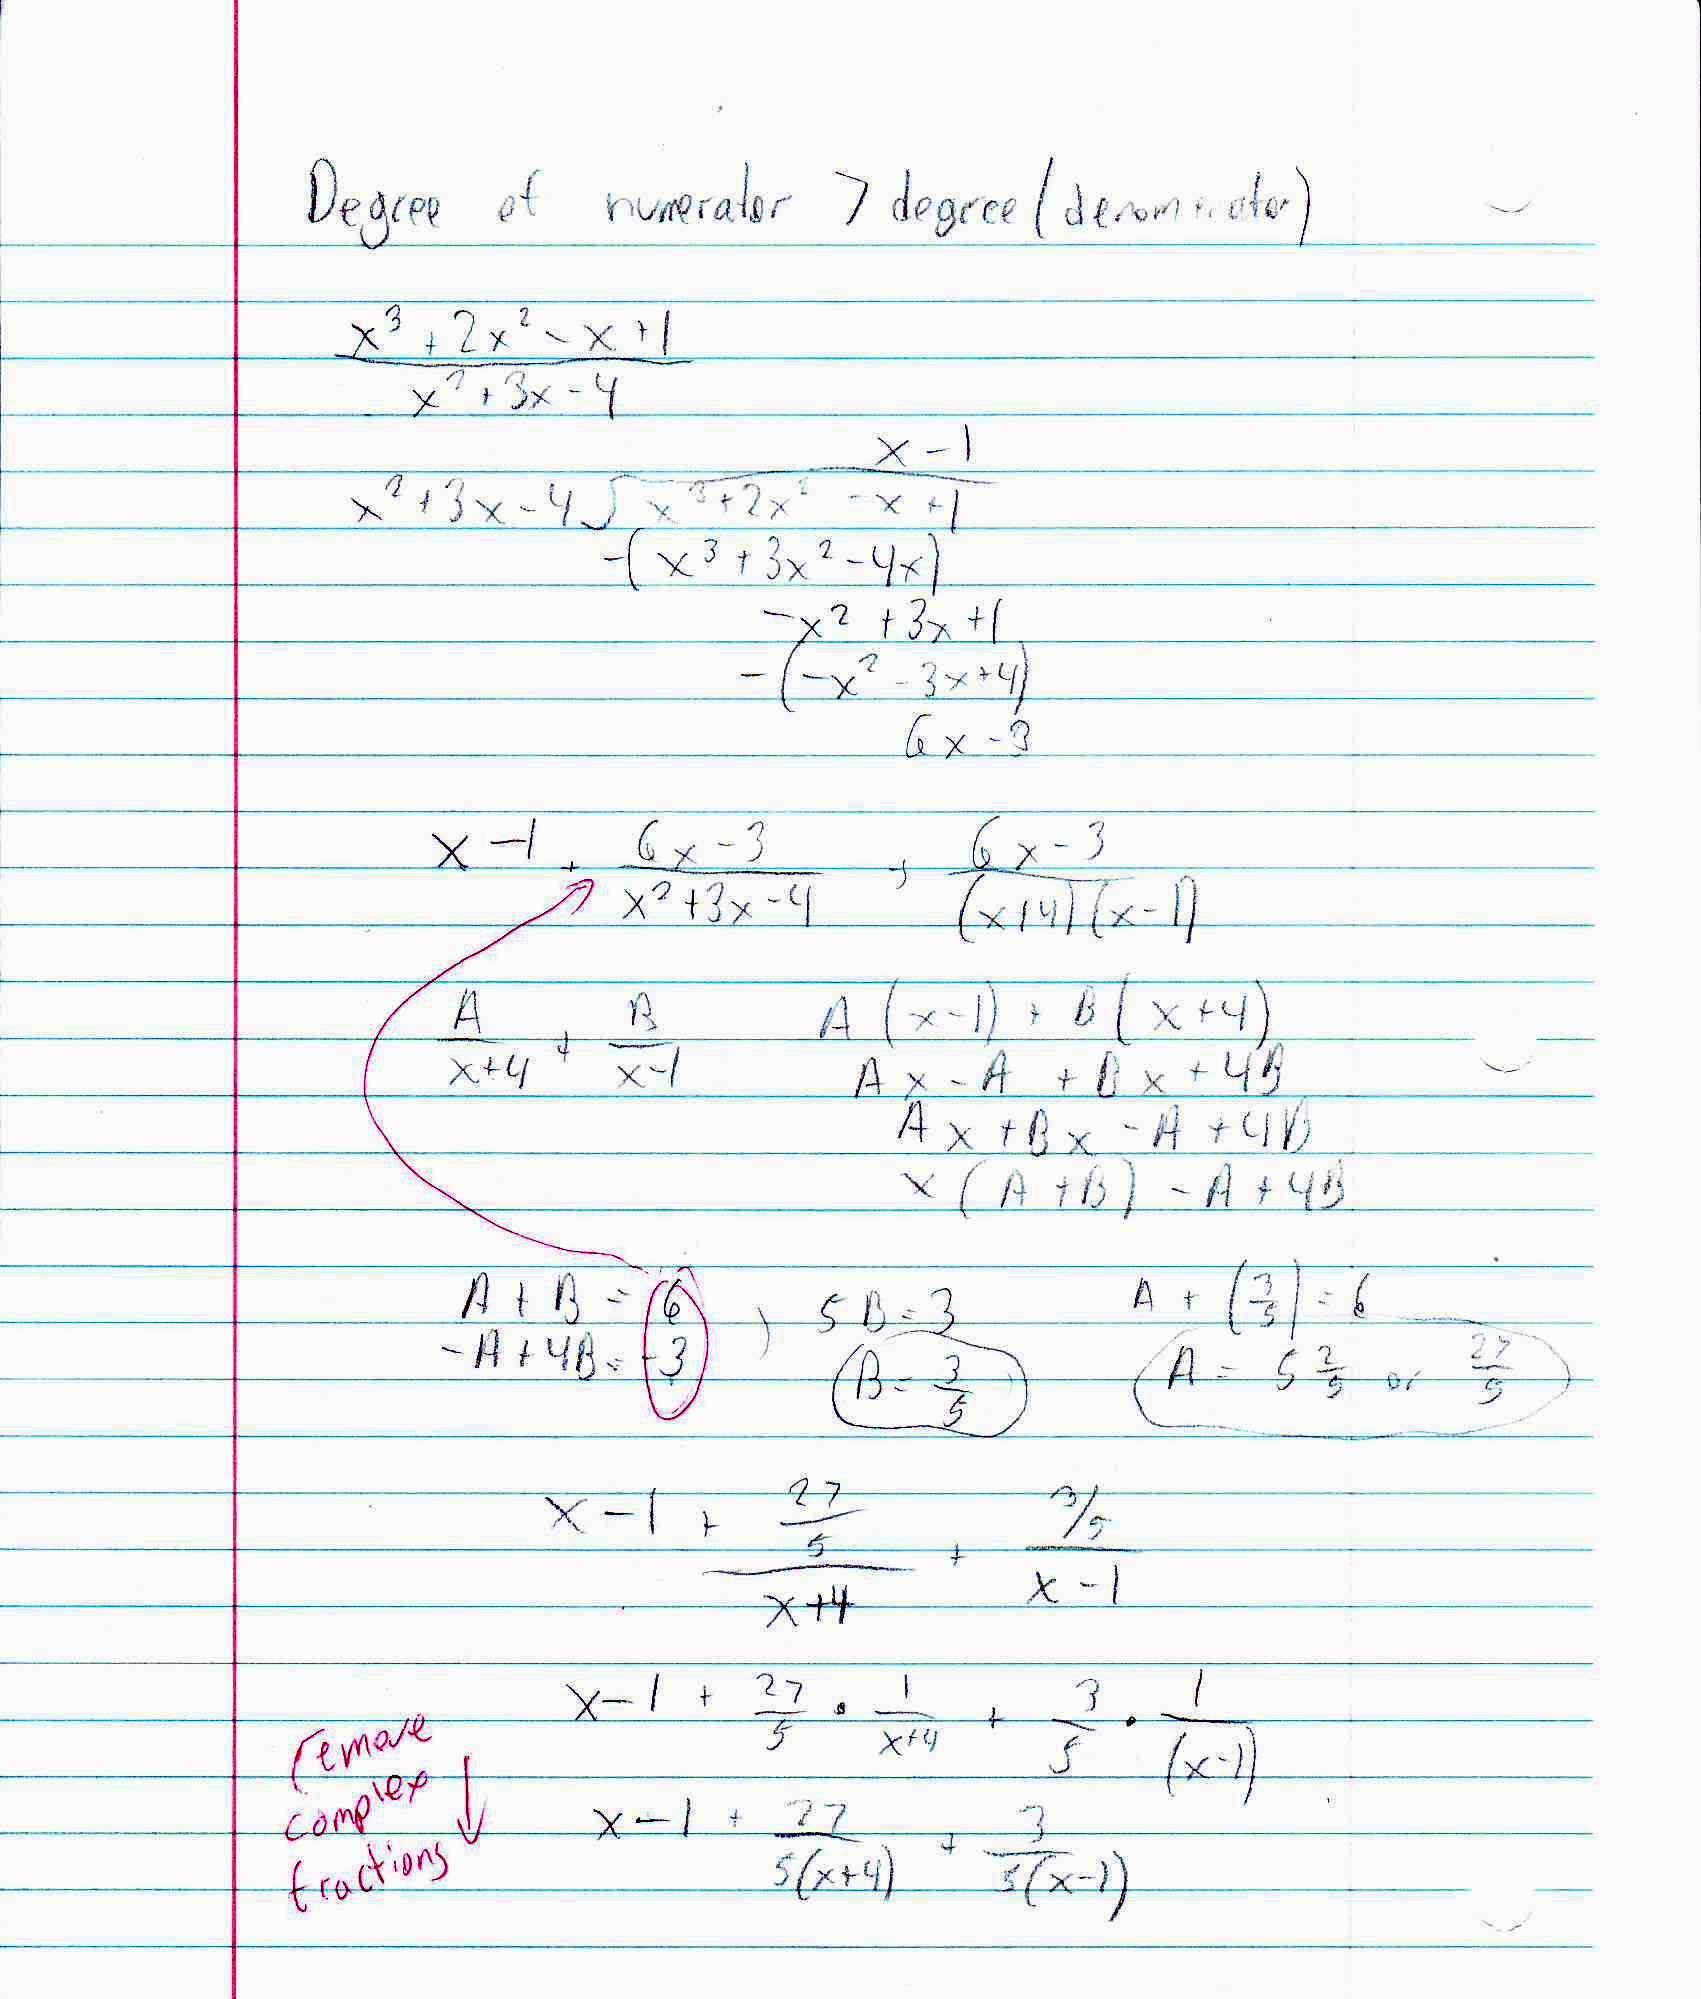 Degree of numerator > degree (denominator)
x³ + 2x² - x + 1
x² + 3x - 4
x - 1
x² + 3x - 4 √ x³ + 2x² - x + 1
-(x³ + 3x² - 4x)
-x² + 3x + 1
-(-x² - 3x + 4)
6x - 3
x - 1 + (6x - 3)/(x² + 3x - 4) , (6x - 3)/((x+4)(x-1))
A/(x+4) + B/(x-1) A(x-1) + B(x+4)
Ax - A + Bx + 4B
Ax + Bx - A + 4B
x(A+B) - A + 4B
A + B = 6 ) 5B = 3 A + (3/5) = 6
-A + 4B = -3 B = 3/5 A = 5 2/5 or 27/5
x - 1 + (27/5)/(x+4) + (3/5)/(x-1)
x - 1 + 27/5 · 1/(x+4) + 3/5 · 1/(x-1)
remove
complex
fractions
x - 1 + 27/(5(x+4)) + 3/(5(x-1))